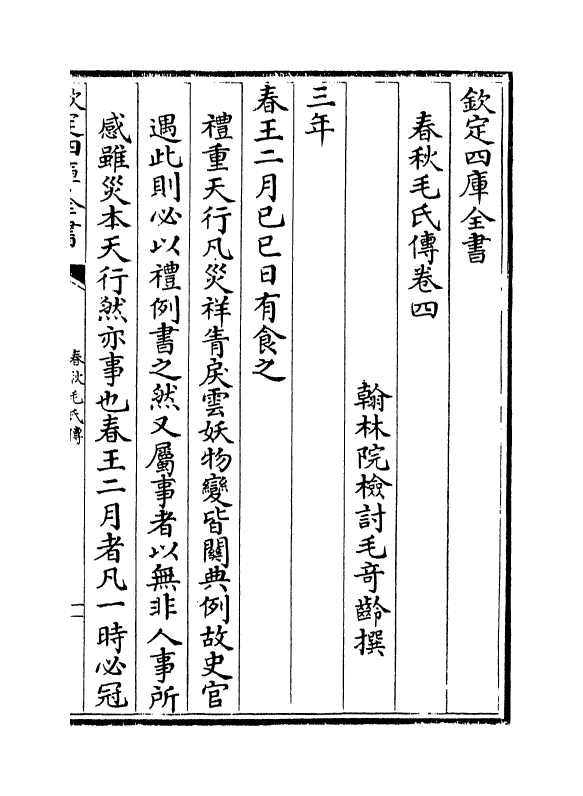 欽定四庫全書
春秋毛氏傳卷四
翰林院檢討毛奇齡撰
三年
春王二月己巳日有食之
禮重天行凡災祥眚戾雲妖物變皆關典例故史官
遇此則必以禮例書之然又屬事者以無非人事所
感雖災本天行然亦事也春王二月者凡一時必冠
欽定四庫全書
春秋毛氏傳
一